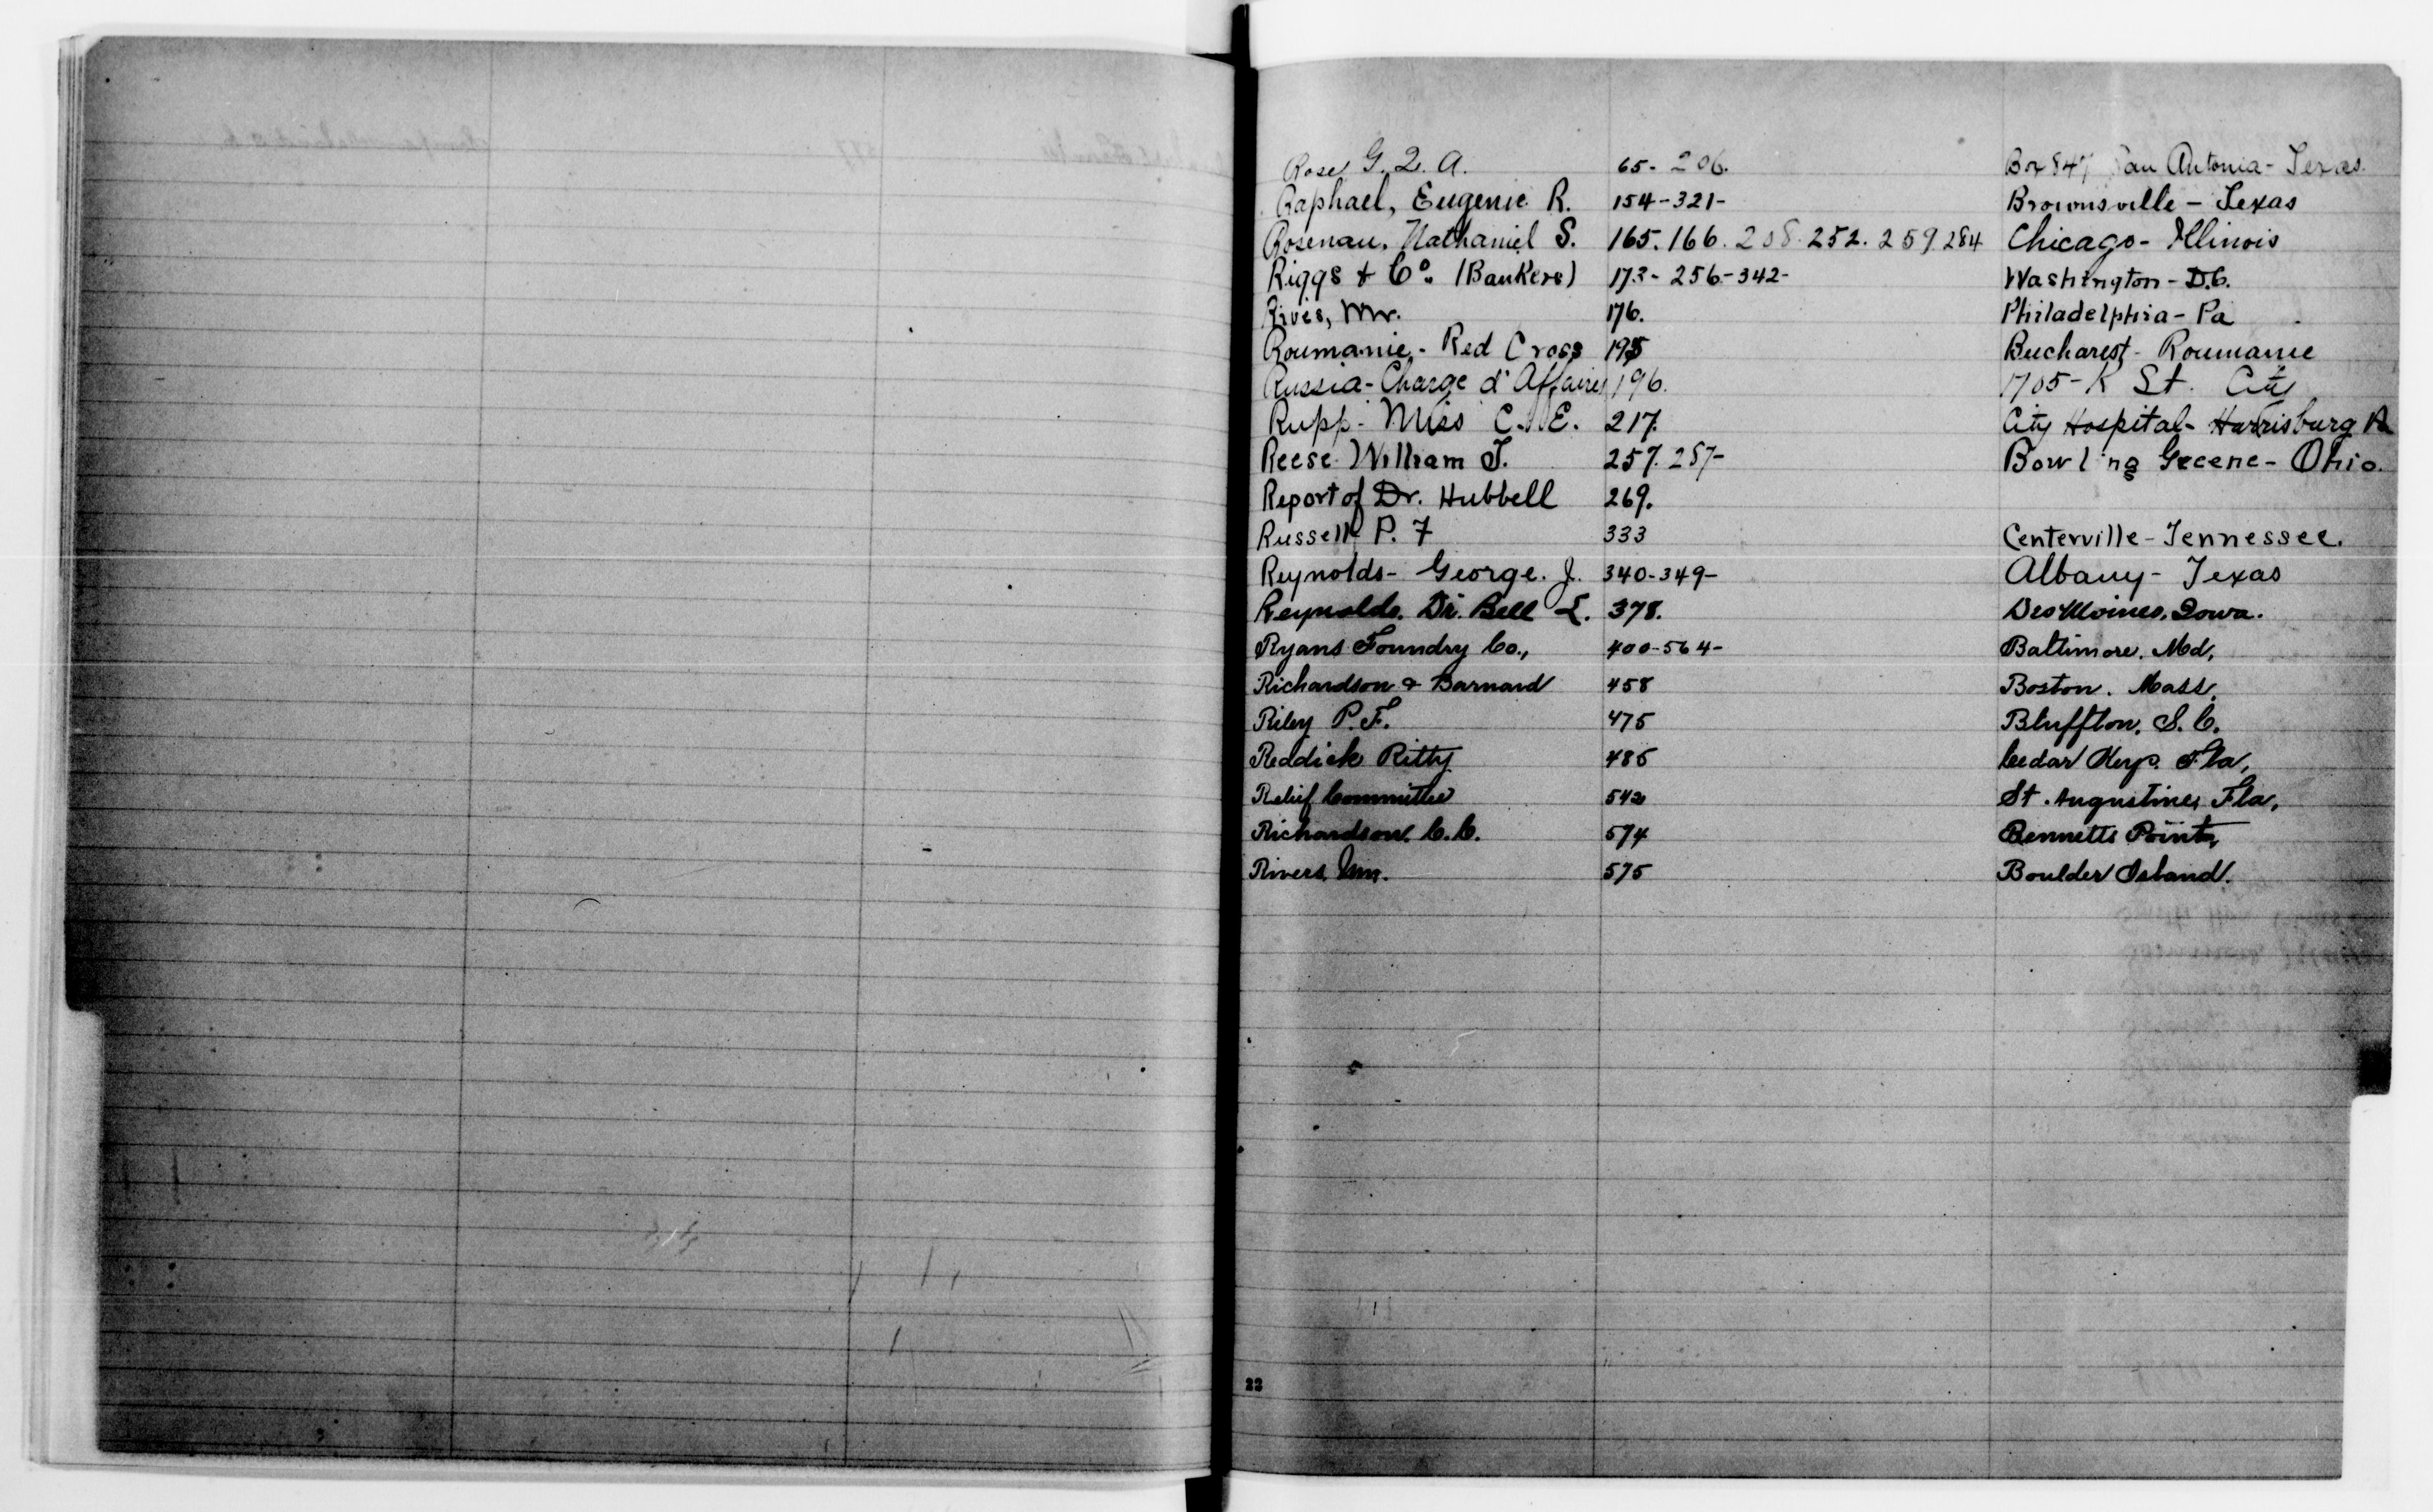 Rose G. Q. A. 65- 206. Box 847 San Antonia - Texas
Raphael, Eugenie R. 154-321- Brownsville - Texas
Rosenau, Nathaniel S. 165. 166. 208. 252. 259. 284 Chicago - Illinois
Riggs & Co. (Bankers) 173- 256-342- Washington - D.C.
Rives, Mr. 176. Philadelphia - Pa
Roumanie - Red Cross 195 Bucharest - Roumanie
Russia - Charge d'Affaires 196. 1705- K St. City
Rupp - Miss C. E. 217. City Hospital - Harrisburg Pa
Reese William J. 257. 287- Bowling Greene - Ohio.
Report of Dr. Hubbell 269.
Russell P. F 333 Centerville - Tennessee.
Reynolds - George. J. 340-349- Albany - Texas
Reynolds. Dr. Bell L. 378. Des Moines. Iowa.
Ryans Foundry Co., 400-564- Baltimore. Md,
Richardson & Barnard 458 Boston. Mass.
Riley P. F. 475 Bluffton, S. C.
Reddick Ritty 485 Cedar Keys. Fla,
Relief Committee 542 St. Augustine, Fla,
Richardson. C. C. 574 Bennetts Point,
Rivers, Wm. 575 Boulder Island.
22